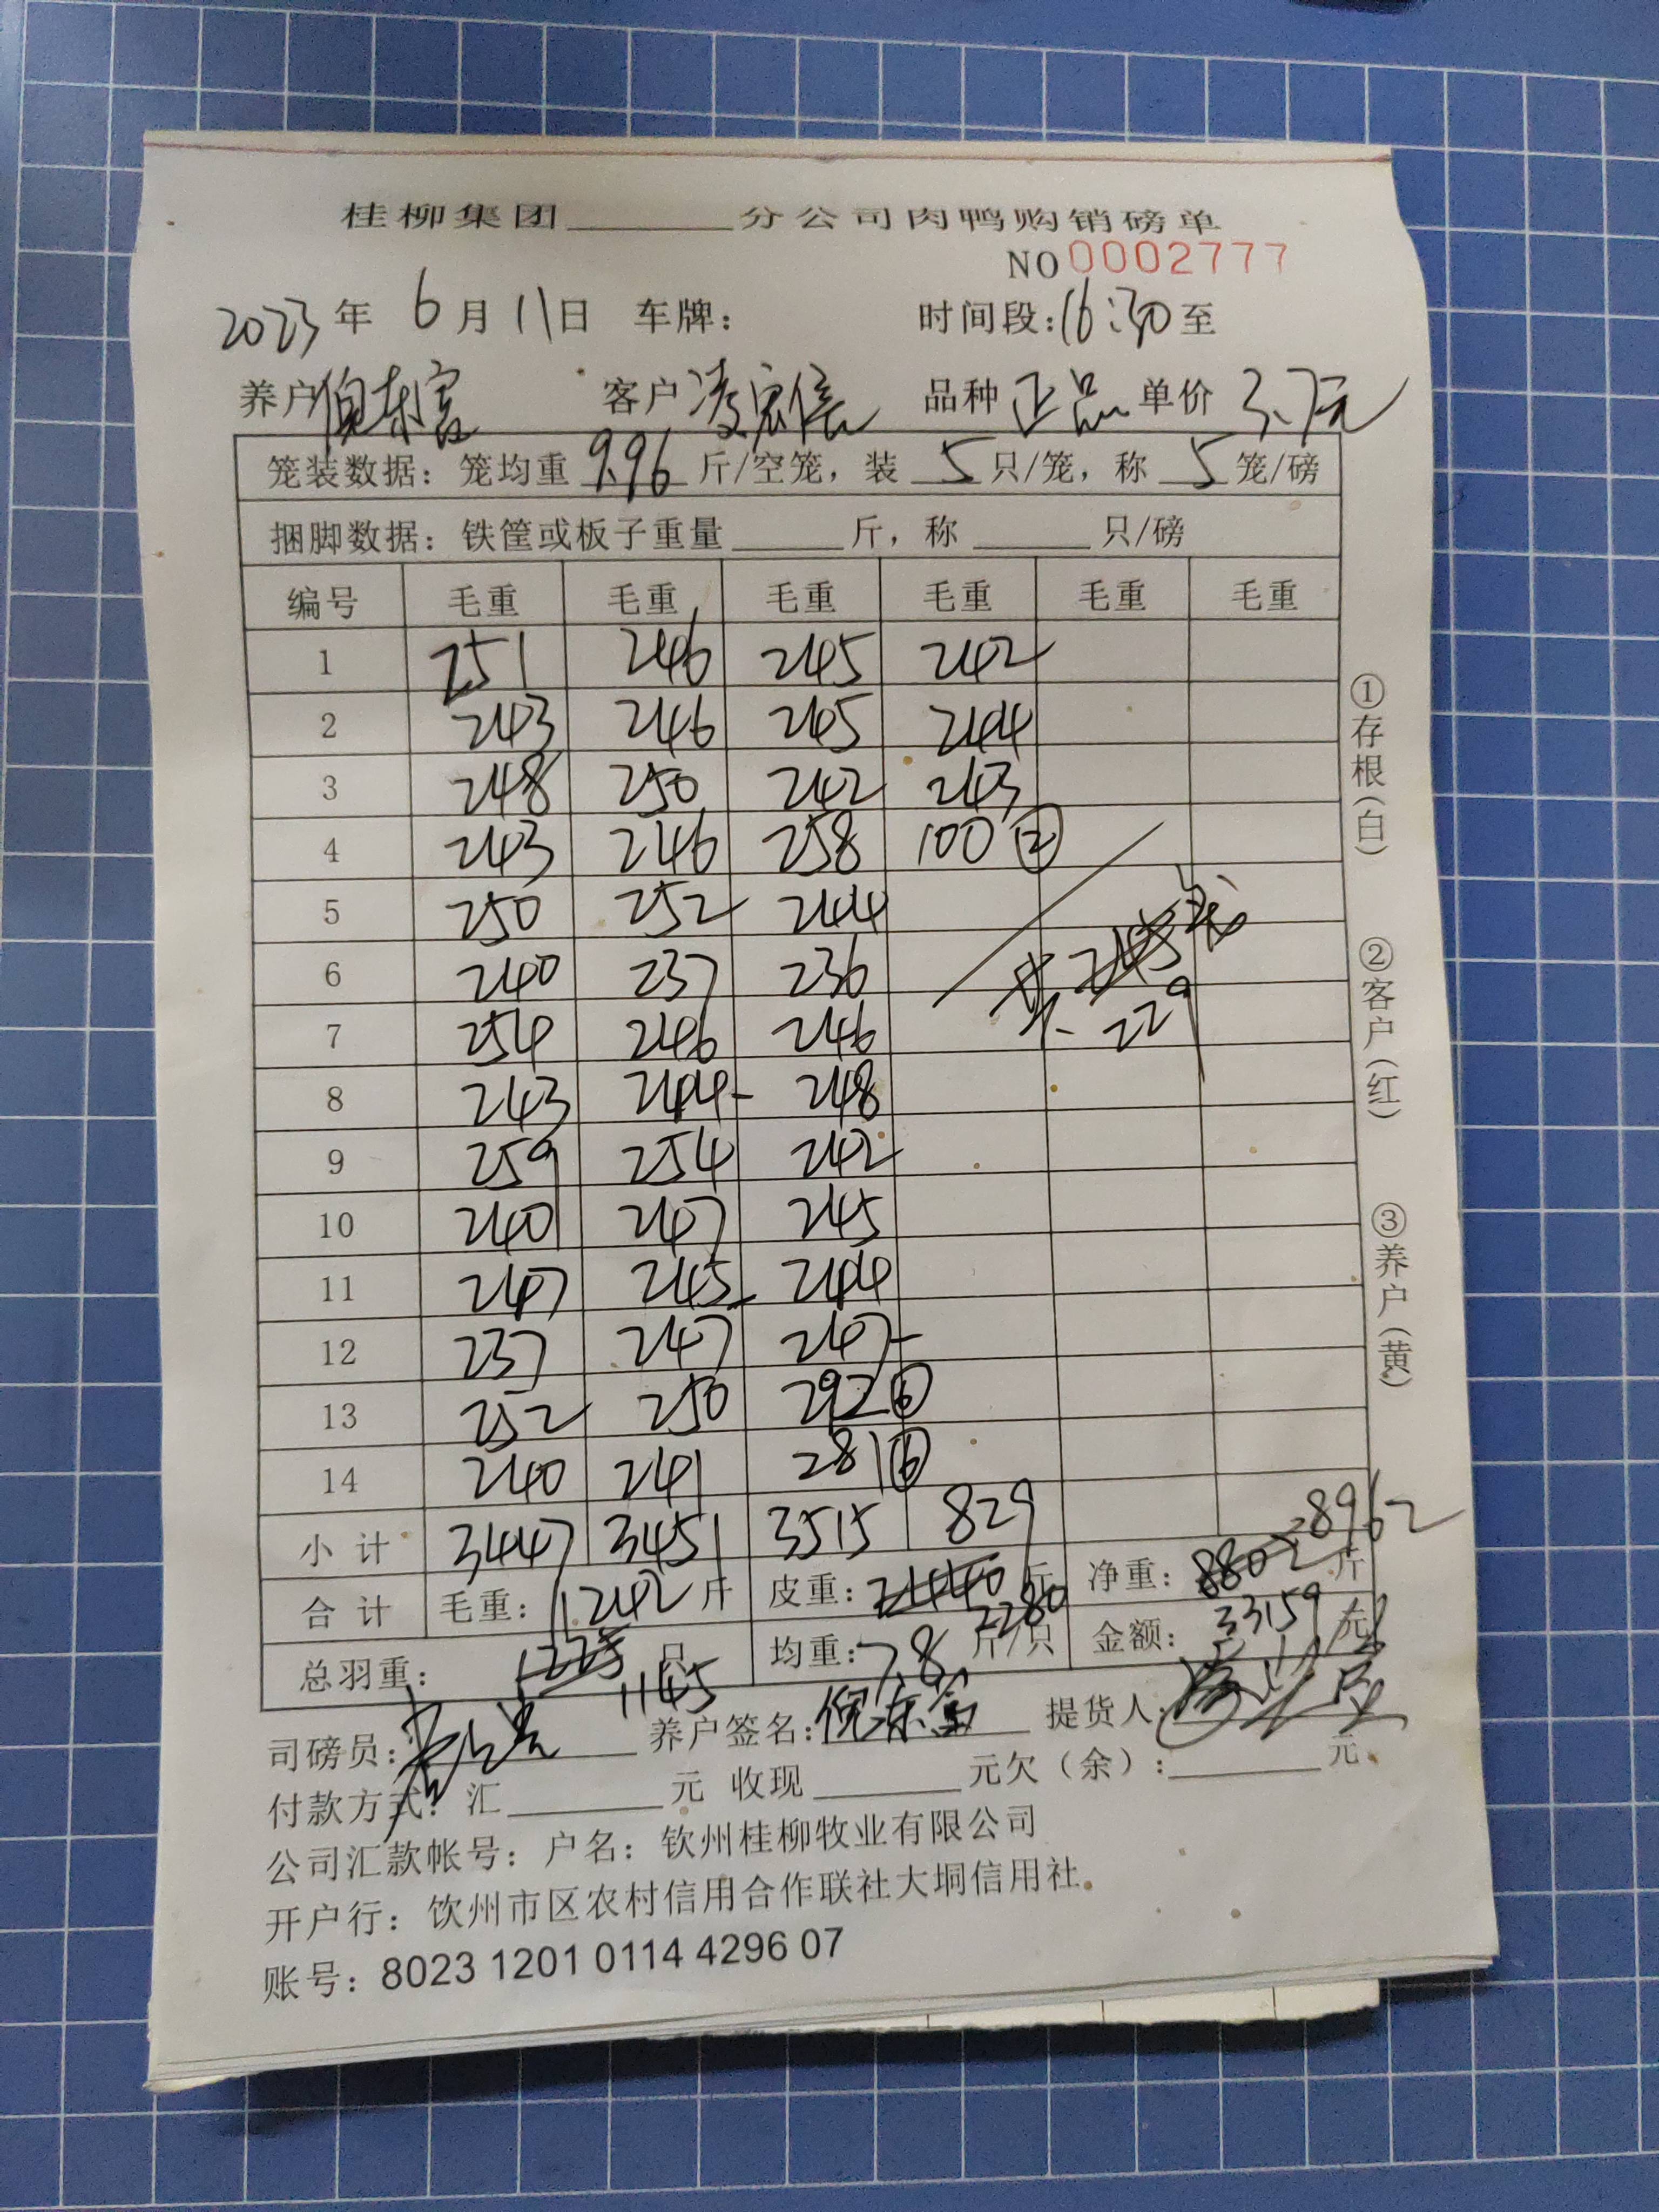 桂柳集团______分公司肉鸭购销磅单
NO 0002777
2023年 6月11日 车牌: 时间段:16:30至
养户 客户 品种 正品 单价 3.7元
笼装数据: 笼均重 9.96 斤/空笼, 装 5 只/笼, 称 5 笼/磅
捆脚数据: 铁筐或板子重量______斤, 称______只/磅
编号 毛重 毛重 毛重 毛重 毛重 毛重
1 251 246 245 242
2 243 246 245 244
3 248 250 242 243
4 243 246 258 100 ②
5 250 252 244
6 240 237 236 共245笼
7 254 246 246 229
8 243 244 248
9 259 254 242
10 240 247 245
11 247 245 244
12 237 247 247
13 252 250 292⑥
14 240 241 281⑥
小计 3447 3451 3515 829
合计 毛重: 11242斤 皮重: 2440斤 2280 净重: 8802斤 8962
总羽重: 1225只 1145 均重: 7.8 斤/只 金额: 33159 元
司磅员: 养户签名: 倪东富 提货人:
付款方式: 汇______元 收现______元欠(余):______元
公司汇款帐号: 户名: 钦州桂柳牧业有限公司
开户行: 钦州市区农村信用合作联社大垌信用社
账号: 8023 1201 0114 4296 07
①存根(白)
②客户(红)
③养户(黄)